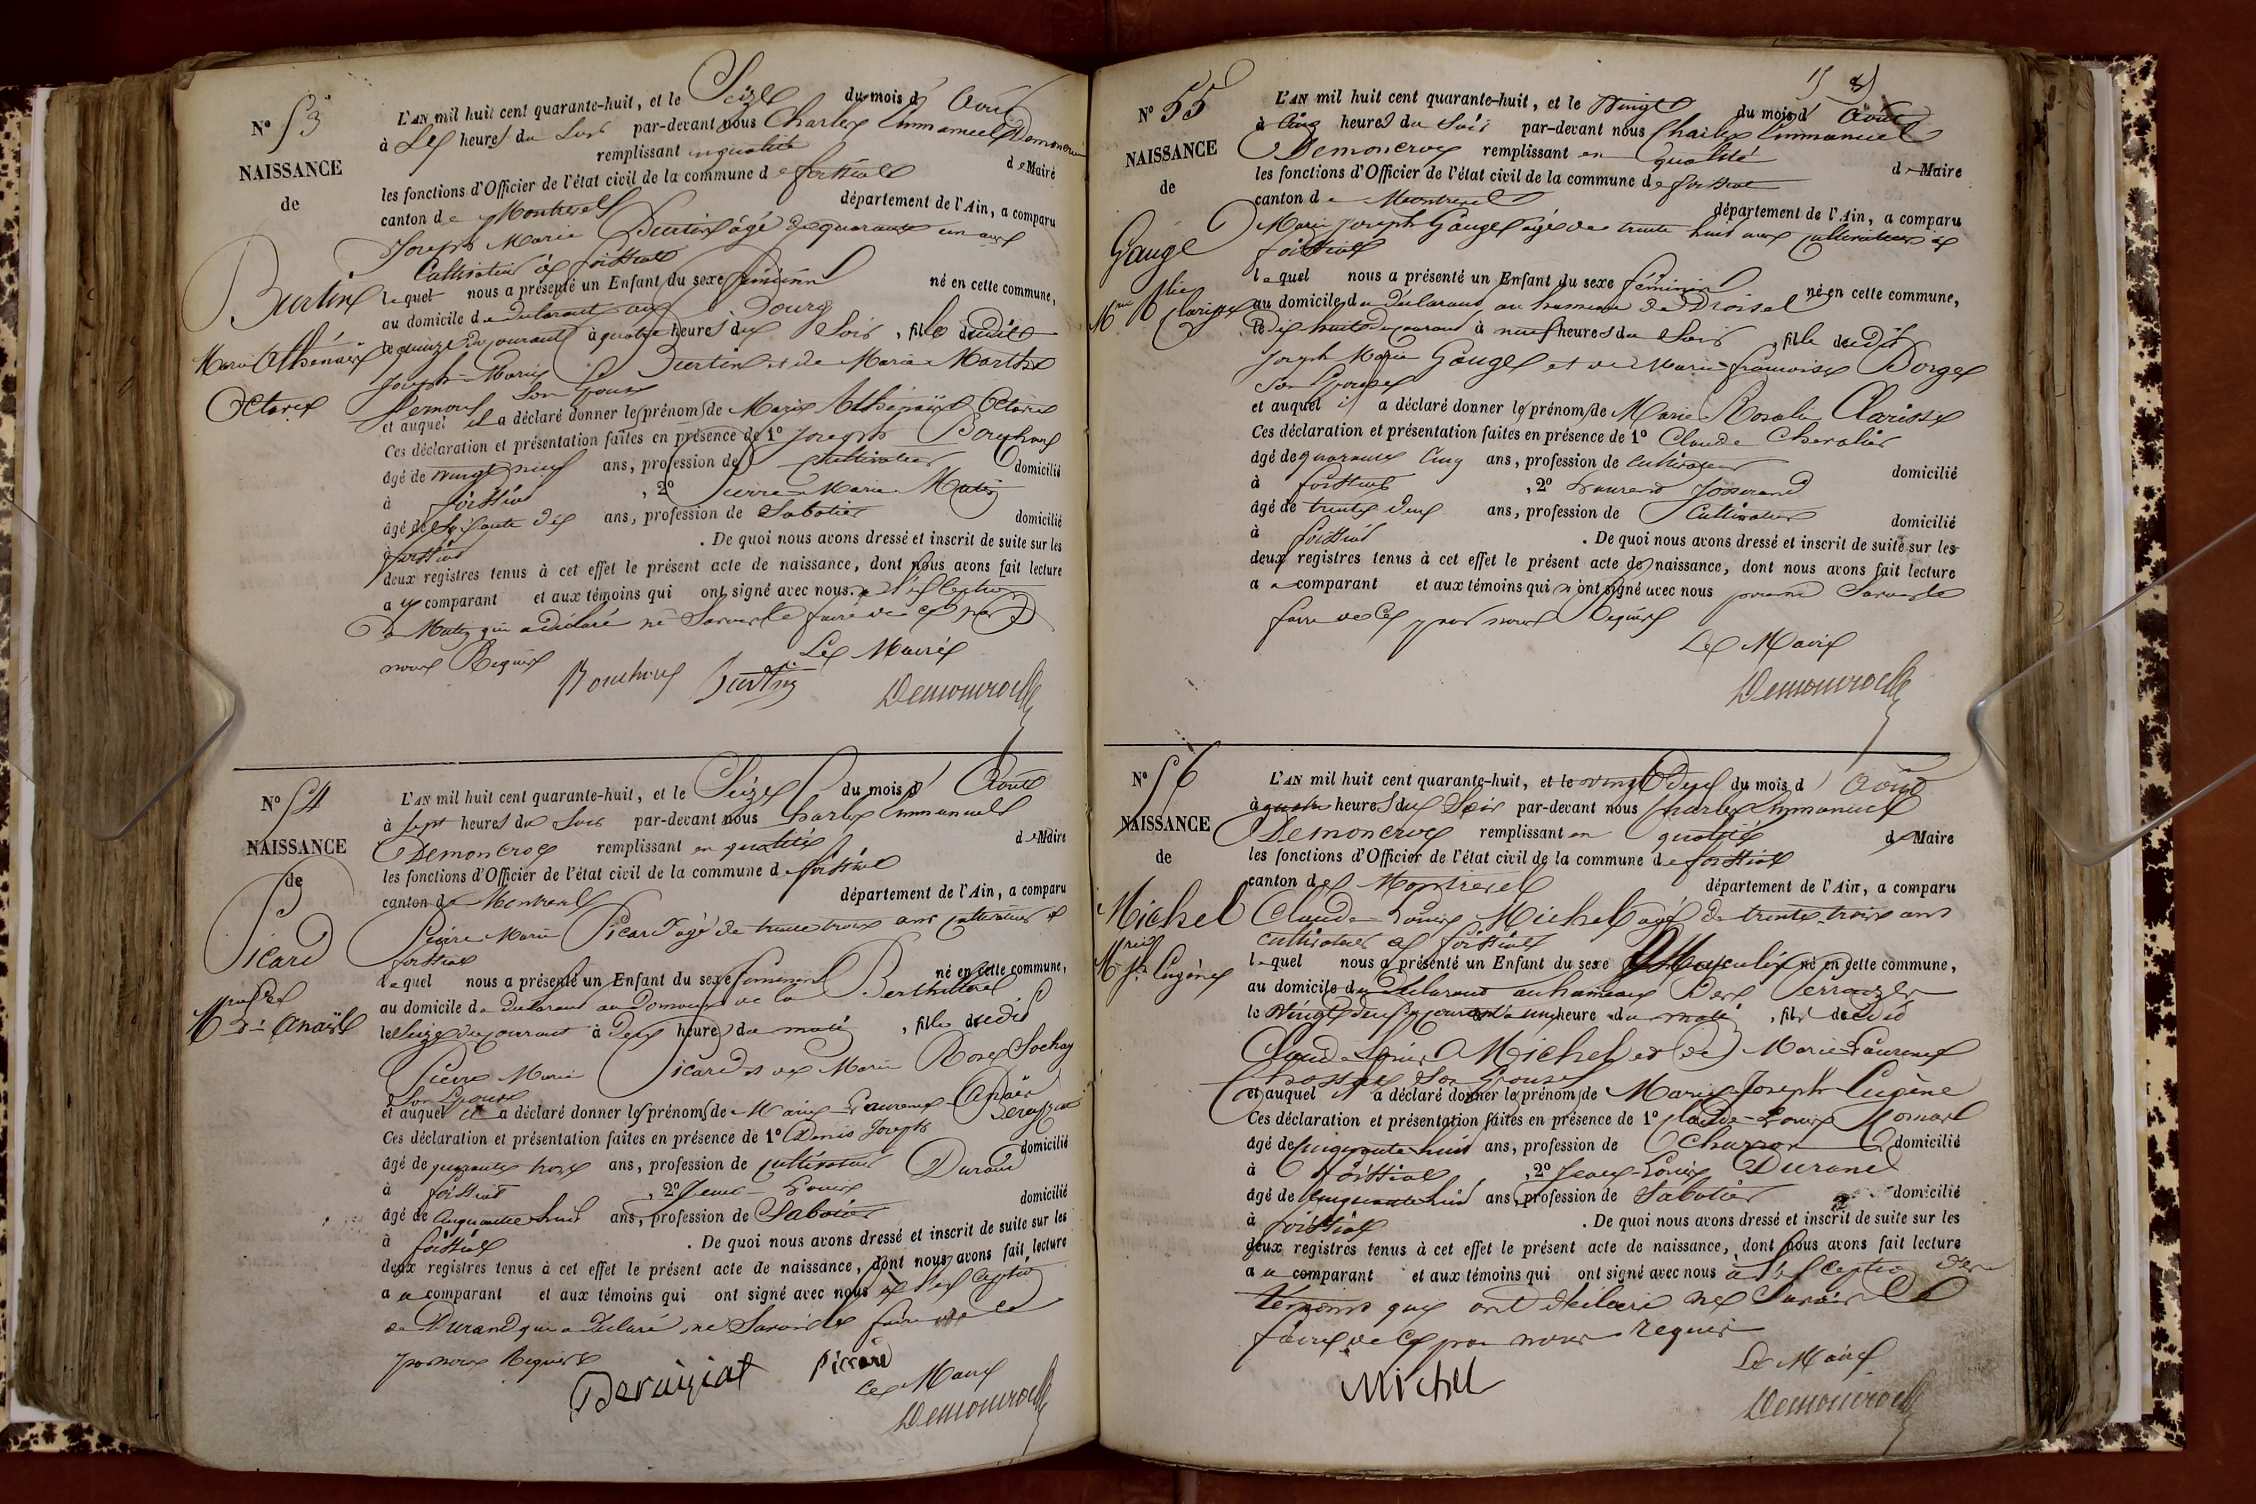 N° 53
NAISSANCE
de
Burtin
Marie Athénaïs
Octavie
L'AN mil huit cent quarante-huit, et le Seize du mois d' Août
à Six heures du Soir par-devant nous Charles Emmanuel Demoncroix
remplissant en qualité de Maire
les fonctions d'Officier de l'état civil de la commune de foissiat
canton de Montrevel département de l'Ain, a comparu
Joseph Marie Burtin âgé de quarante un ans
Cultivateur à foissiat
lequel nous a présenté un Enfant du sexe féminin né en cette commune,
au domicile de déclarant au Bourg
le quinze du courant à quatre heures du Soir, fille dudit
Joseph Marie Burtin et de Marie Marthe
son Epouse
et auquel il a déclaré donner les prénoms de Marie Athénaïs Octavie
Ces déclaration et présentation faites en présence de 1° Joseph Bouchoux
âgé de vingt neuf ans, profession de Cultivateur domicilié
à foissiat, 2° Pierre Marie Matez
âgé de soixante dix ans, profession de Sabotier domicilié
à foissiat. De quoi nous avons dressé et inscrit de suite sur les
deux registres tenus à cet effet le présent acte de naissance, dont nous avons fait lecture
au comparant et aux témoins qui ont signé avec nous à l'exception
de Matez qui a déclaré ne Savoir le faire de ce par
nous Requis
Le Maire
Bouchoux Burtin Demoncroix
N° 54
NAISSANCE
de
Picard
Anaïs
L'AN mil huit cent quarante-huit, et le Seize du mois d' Août
à Sept heures du Soir par-devant nous Charles Emmanuel
Demoncroix remplissant en qualité de Maire
les fonctions d'Officier de l'état civil de la commune de foissiat
canton de Montrevel département de l'Ain, a comparu
Pierre Marie Picard âgé de trente trois ans cultivateur à
foissiat
lequel nous a présenté un Enfant du sexe féminin né en cette commune,
au domicile de déclarant au Domaine de la
le Seize du courant à Deux heures du matin, fille dudit
Pierre Marie Picard et de Marie Rose Sochay
son Epouse
et auquel il a déclaré donner les prénoms de Marie Laurence Anaïs
Ces déclaration et présentation faites en présence de 1° Denis Joseph
âgé de quarante trois ans, profession de cultivateur domicilié
à foissiat, 2° Jean Louis Durand
âgé de cinquante huit ans, profession de Sabotier domicilié
à foissiat. De quoi nous avons dressé et inscrit de suite sur les
deux registres tenus à cet effet le présent acte de naissance, dont nous avons fait lecture
au comparant et aux témoins qui ont signé avec nous à l'exception
de Durand qui a déclaré ne Savoir le faire de ce
par nous Requis
Picard
Le Maire
Demoncroix
N° 55
NAISSANCE
de
Gauge
Mrie Rlie
Clarisse
L'AN mil huit cent quarante-huit, et le Vingt du mois d' Août
à Cinq heures du Soir par-devant nous Charles Emmanuel
Demoncroix remplissant en qualité de Maire
les fonctions d'Officier de l'état civil de la commune de foissiat
canton de Montrevel département de l'Ain, a comparu
Marie Joseph Gauge âgé de trente huit ans cultivateur à
foissiat
lequel nous a présenté un Enfant du sexe féminin né en cette commune,
au domicile du déclarant au hameau de Droisel
le dix huit du courant à neuf heures du Soir, fille dudit
Joseph Marie Gauge et de Marie françoise Borge
son Epouse
et auquel il a déclaré donner les prénoms de Marie Rosalie Clarisse
Ces déclaration et présentation faites en présence de 1° Claude Chevalier
âgé de quarante Cinq ans, profession de cultivateur domicilié
à foissiat, 2° Laurent Josserand
âgé de trente Deux ans, profession de Cultivateur domicilié
à foissiat. De quoi nous avons dressé et inscrit de suite sur les
deux registres tenus à cet effet le présent acte de naissance, dont nous avons fait lecture
au comparant et aux témoins qui n'ont signé avec nous pour ne Savoir le
faire de ce par nous Requis
Le Maire
Demoncroix
N° 56
NAISSANCE
de
Michel
Mrie Jph Eugène
L'AN mil huit cent quarante-huit, et le vingt Deux du mois d' Août
à quatre heures du Soir par-devant nous Charles Emmanuel
Demoncroix remplissant en qualité de Maire
les fonctions d'Officier de l'état civil de la commune de foissiat
canton de Montrevel département de l'Ain, a comparu
Claude Louis Michel âgé de trente trois ans
cultivateur à foissiat
lequel nous a présenté un Enfant du sexe Masculin né en cette commune,
au domicile du déclarant au hameau Des
le Vingt Deux du courant à une heure du matin, fils dudit
Claude Louis Michel et de Marie Laurence
son Epouse
et auquel il a déclaré donner les prénoms de Marie Joseph Eugène
Ces déclaration et présentation faites en présence de 1° Claude Louis
âgé de cinquante huit ans, profession de Charron domicilié
à foissiat, 2° Jean Louis Durand
âgé de cinquante huit ans, profession de Sabotier domicilié
à foissiat. De quoi nous avons dressé et inscrit de suite sur les
deux registres tenus à cet effet le présent acte de naissance, dont nous avons fait lecture
au comparant et aux témoins qui ont signé avec nous à l'exception des
témoins qui ont déclaré ne Savoir le
faire de ce par nous requis
Le Maire
Michel Demoncroix